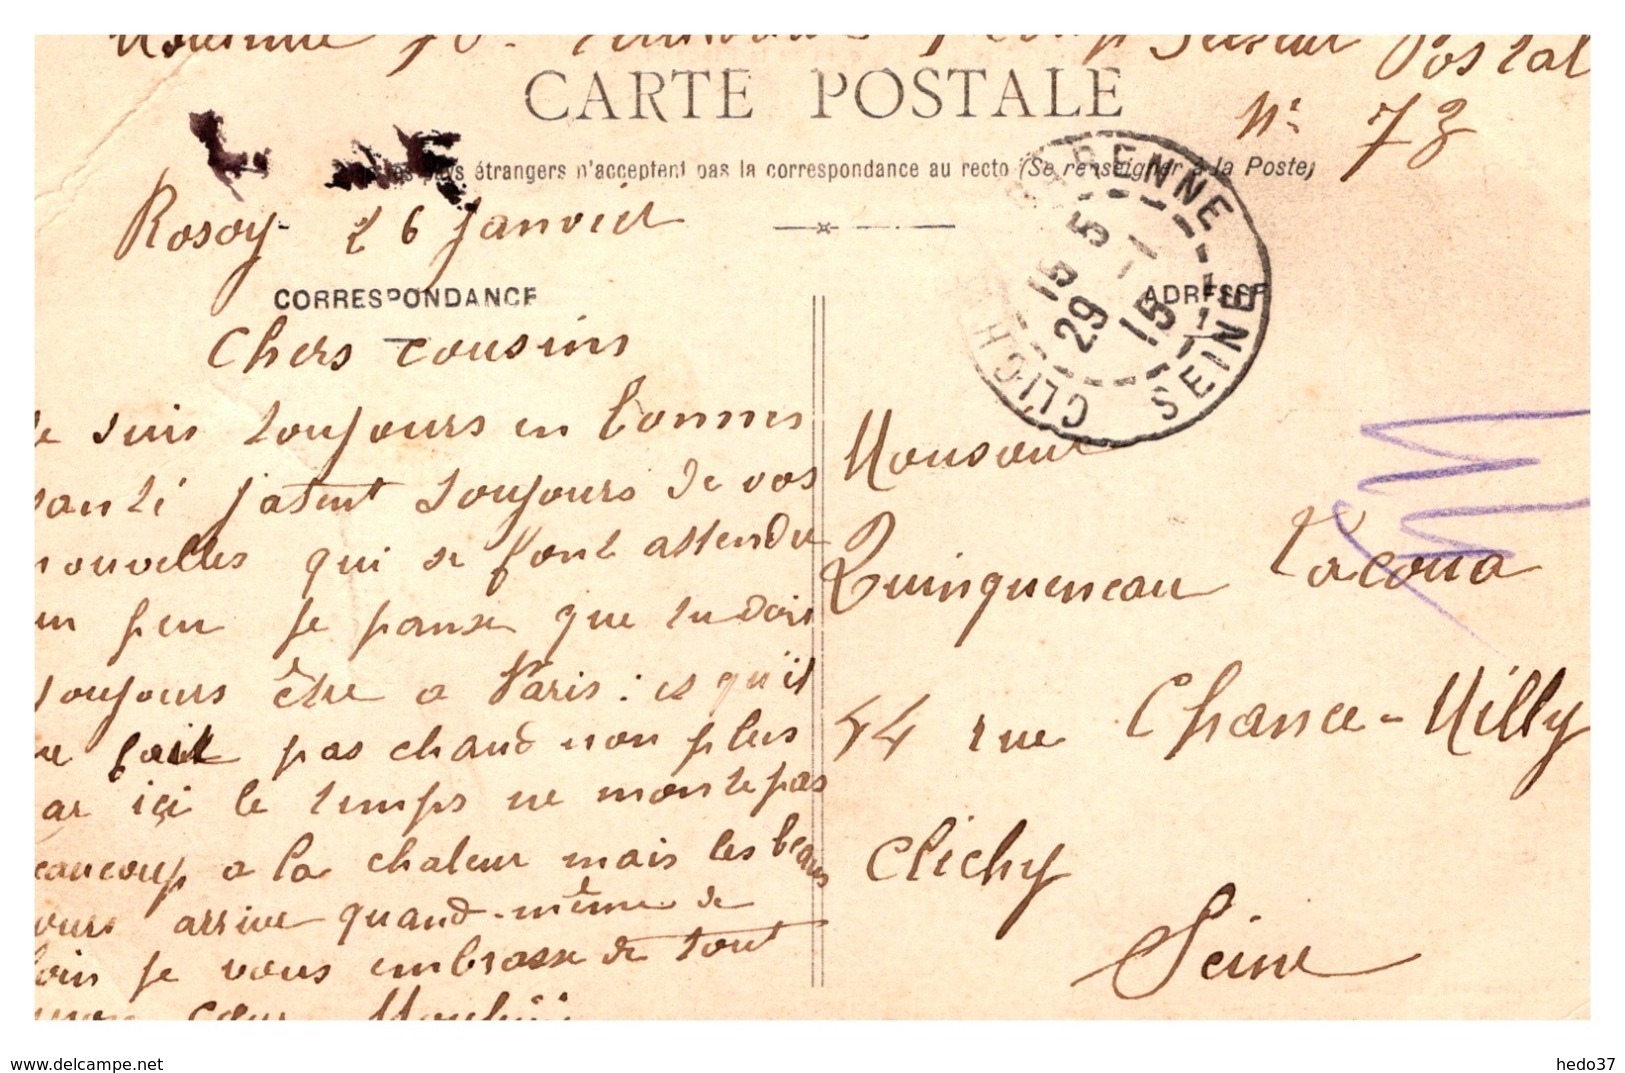 Secteur Postal
CARTE POSTALE
N° 73
pays étrangers n'acceptent pas la correspondance au recto (Se renseigner à la Poste)
Rosoy 26 Janvier
CORRESPONDANCE
ADRESSE
CLICHY
GARENNE
SEINE
15 5
29 -1
15
Chers cousins
Je suis toujours en bonnes
santé j'atent toujours de vos
nouvelles qui se font attendre
un peu je panse que tu dois
toujours être a Paris : es qu'il
ne fait pas chaud non plus
car içi le temps ne monte pas
beaucoup a la chaleur mais les beaus
jours arrive quand-même de
loin je vous embrasse de tout
mon cœur
Monsour
Quinqueneau
44 rue Chance-Milly
Clichy
Seine
www.delcampe.net
hedo37